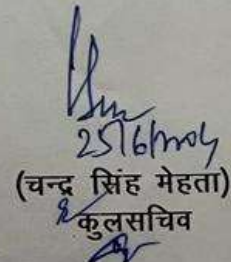 25/6/2004
(चन्द्र सिंह मेहता)
कुलसचिव